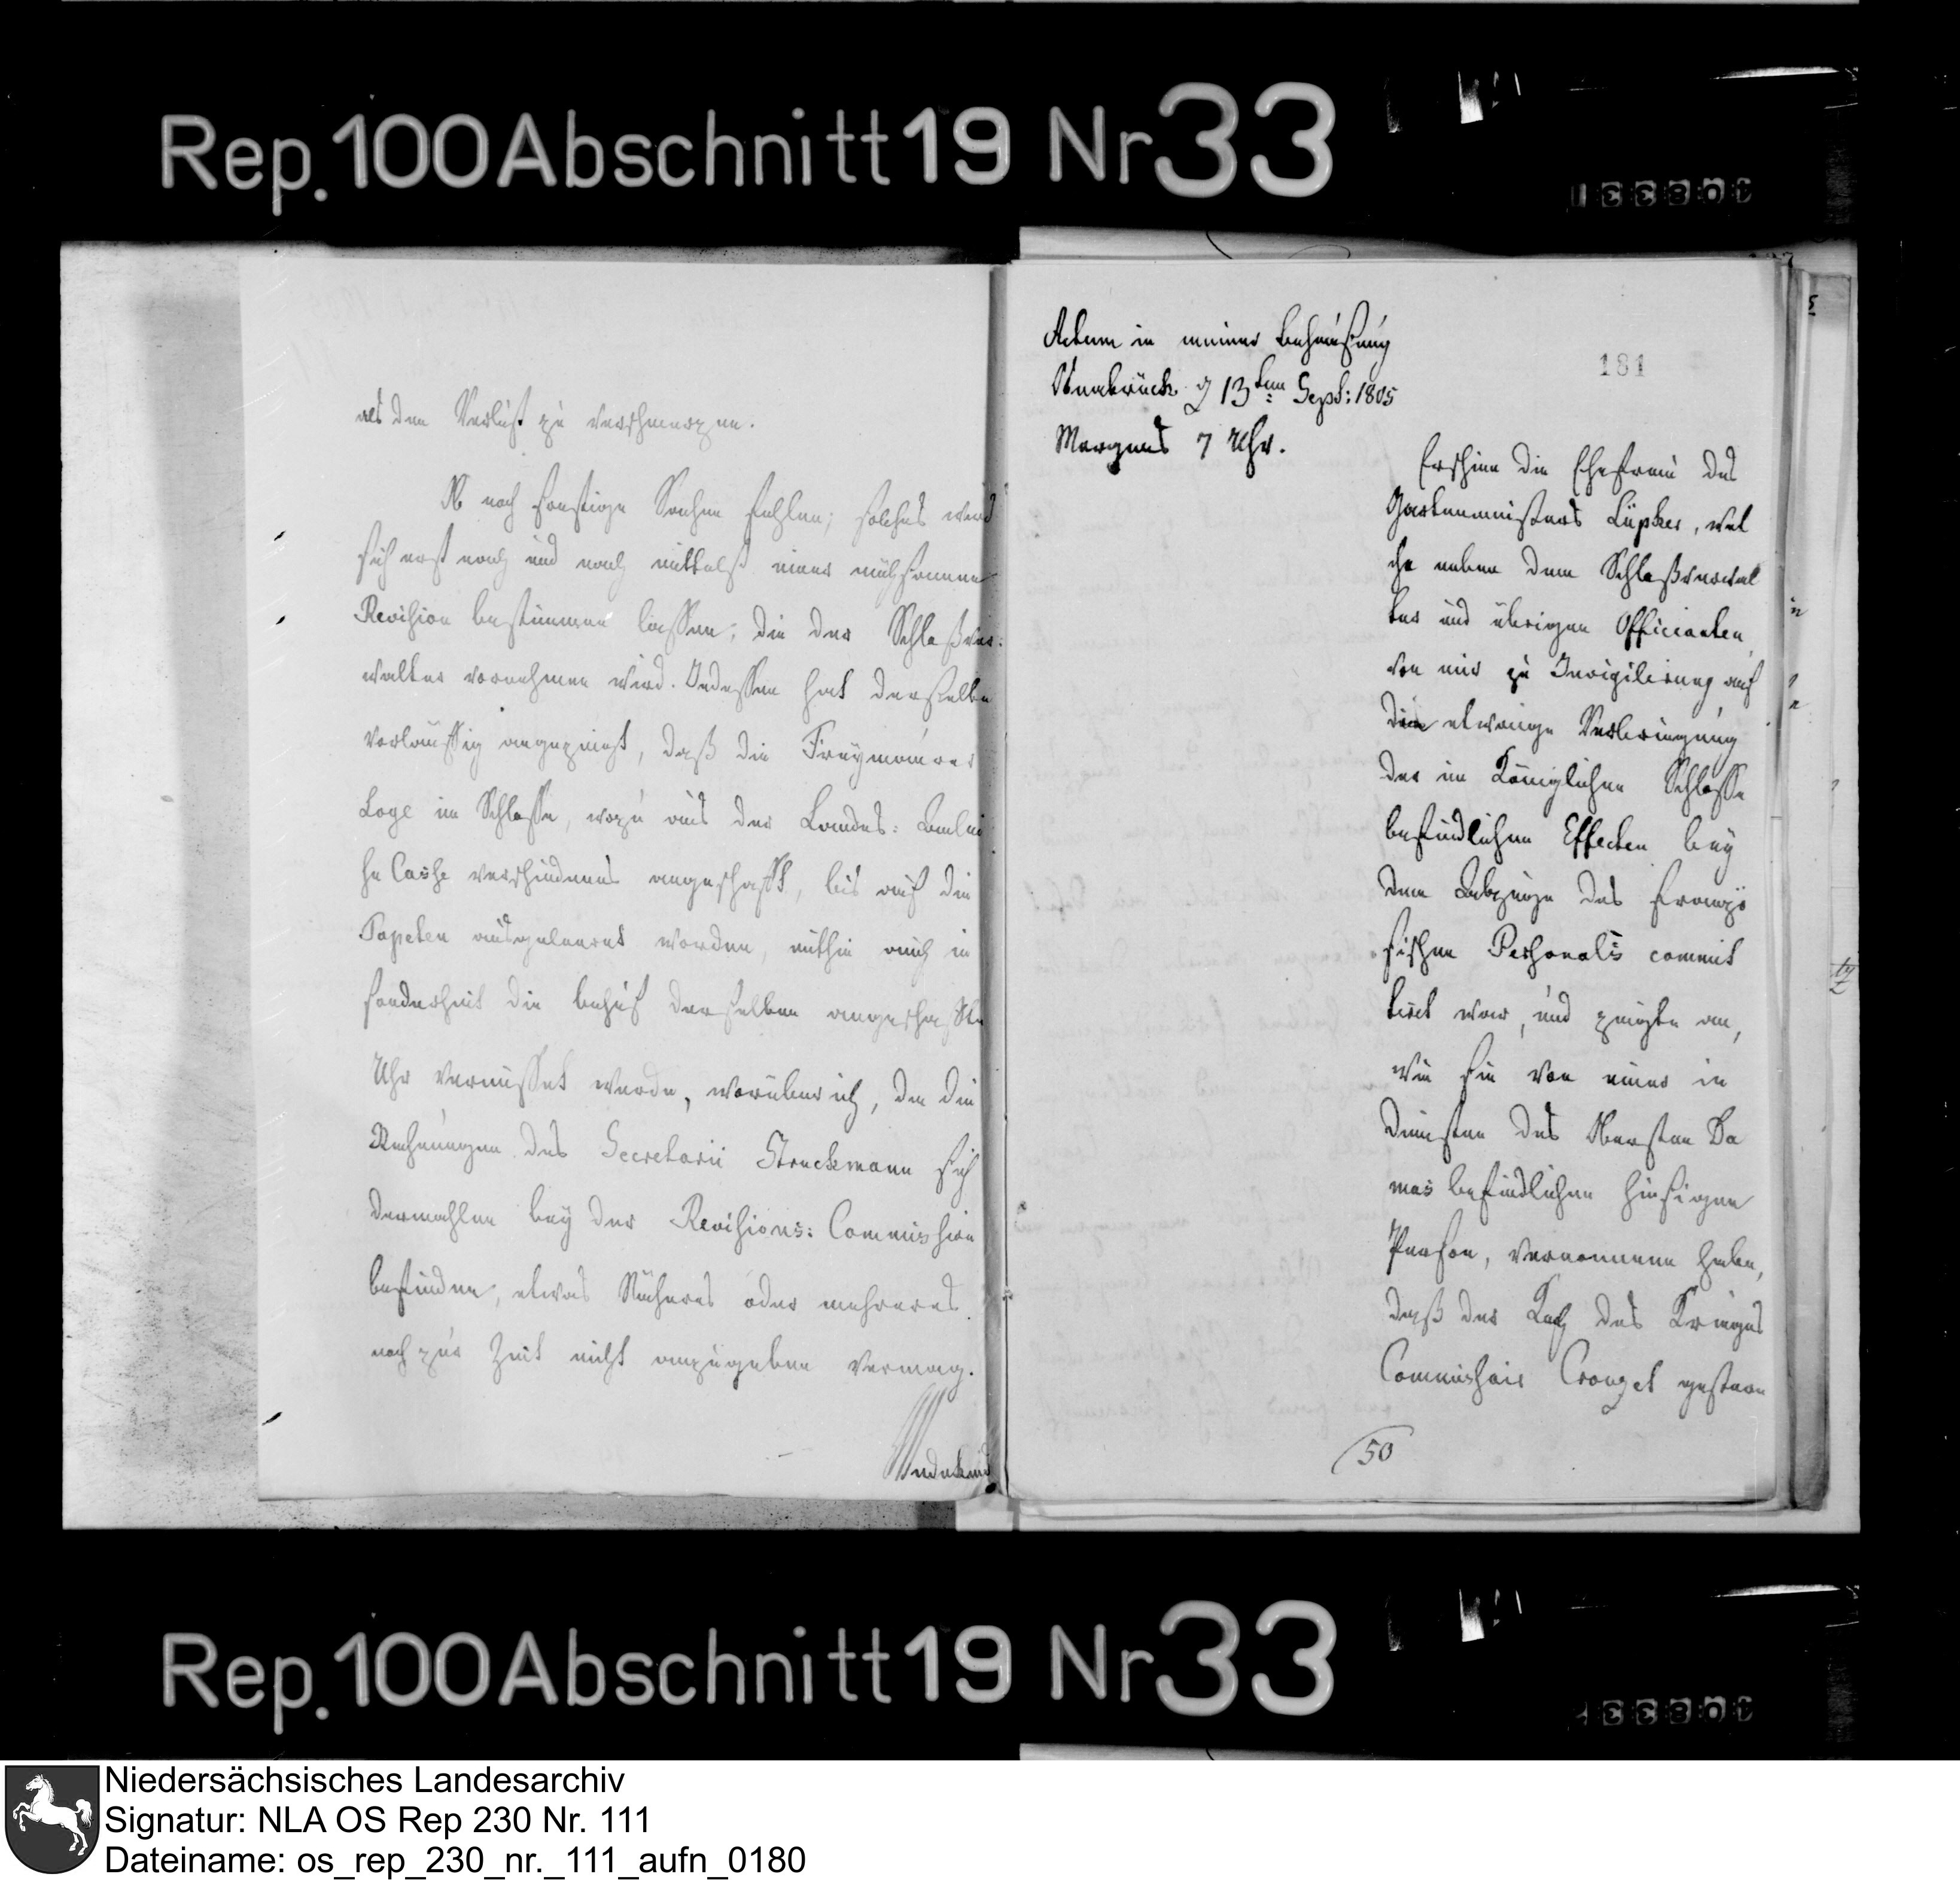 Rep. 100 Abschnitt 19 Nr 33
als den Verlust zu verschmerzen.
Ob noch sonstige Sachen fehlen; solches wird
sich erst nach und nach mittelst einer mühsamen
Revision bestimmen lassen; die der Schloßver:
walter vornehmen wird. Indessen hat derselbe
vorläuffig angezeigt, daß die Freymaurer
Loge im Schlosse, wozu aus der Landes: Anlei
he Casse verschiedenes angeschafft, bis auf die
Tapeten ausgeleeret worden, mithin auch in
sonderheit die behuf derselben angeschaffte
Uhr vermisset werde, worüber ich, da die
Rechnungen des Secretarii Struckmann sich
dermahlen bey der Revisions: Commission
befinden, etwas Näheres oder mehreres
noch zur Zeit nicht anzugeben vermag.
181
Actum in meiner Behausung
Osnabrück d 13ten Sept: 1805
Morgens 7 Uhr.
Erschien die Ehefrau des
Gartenmeisters Lüpker, wel
che neben dem Schloßverwal
ter und übrigen Officianten,
von mir zu Invigilirung auf
die etwaige Verbringung
der im Königlichen Schlosse
befindlichen Effecten bey
dem Abzuge des französi
sischen Personalis commit
tirt war, und zeigte an,
wie sie von einer in
Diensten des Obersten Da
mas befindlichen hiesigen
Person, vernommen habe,
daß der Koch des Krieges
Commissair Crouzet gestern
50
Rep. 100 Abschnitt 19 Nr 33
Niedersächsisches Landesarchiv
Signatur: NLA OS Rep 230 Nr. 111
Dateiname: os_rep_230_nr._111_aufn_0180